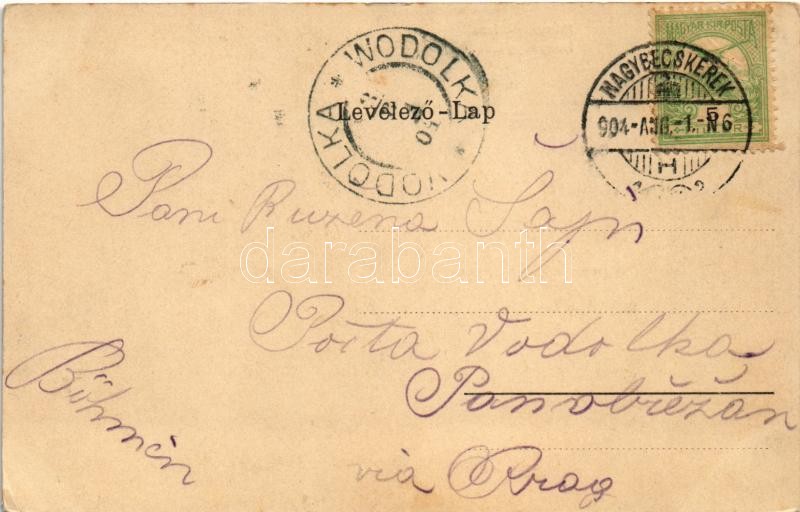 MAGYAR KIR. POSTA
5
NAGYBECSKEREK
904-AUG.-1.-N6
* WODOLKA * WODOLKA
Levelező-Lap
darabanth
Pani Ruzena
Pošta Vodolka
Panobřežán
Böhmen
via Prag